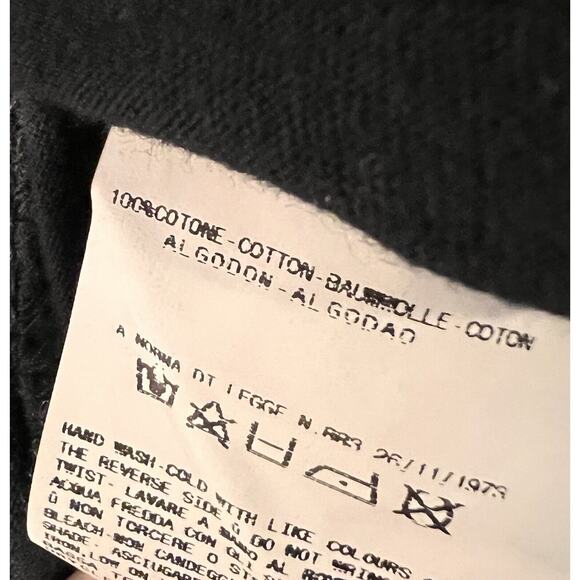 100%COTONE-COTTON-BAUMWOLLE-COTON
ALGODON-ALGODAO
A NORMA DI LEGGE N.883 26/11/1973
HAND WASH-COLD WITH LIKE COLOURS
THE REVERSE SIDE DO NOT WRING
TWIST- LAVARE A MANO AL ROVE
ACQUA FREDDA CON
NON TORCERE O
BLEACH-NON CANDEGG
SHADE. ASCIUGARE
IRON LOW ON